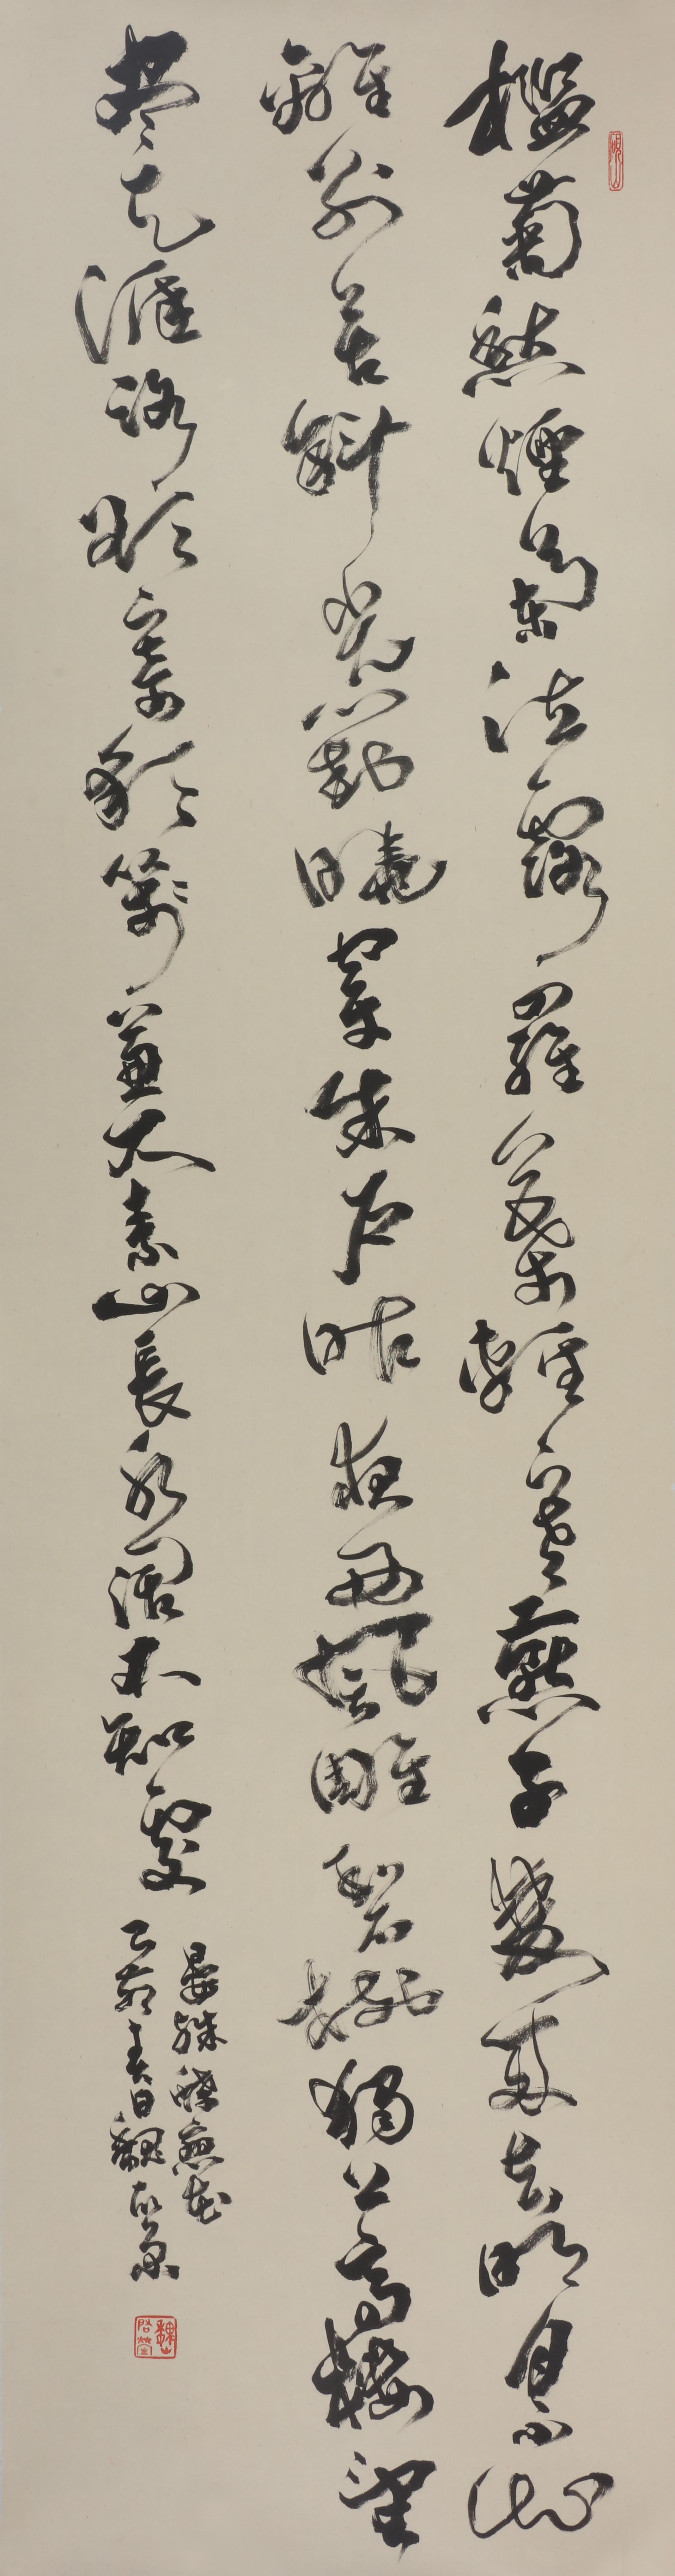 檻菊愁煙蘭泣露羅幕輕寒燕子雙飛去明月不諳
離別苦斜光到曉穿朱戶昨夜西風雕碧樹獨上高樓望
盡天涯路欲寄彩箋兼尺素山長水闊不知處
晏殊蝶戀花
春日魏啟後